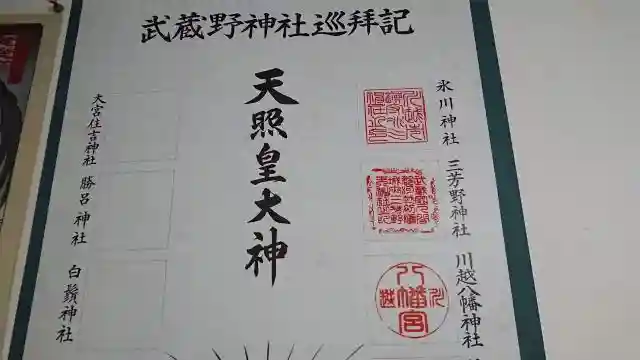 武蔵野神社巡拝記
氷川神社
三芳野神社
川越八幡神社
天照皇大神
大宮住吉神社
勝呂神社
白鬚神社
八幡宮
川越